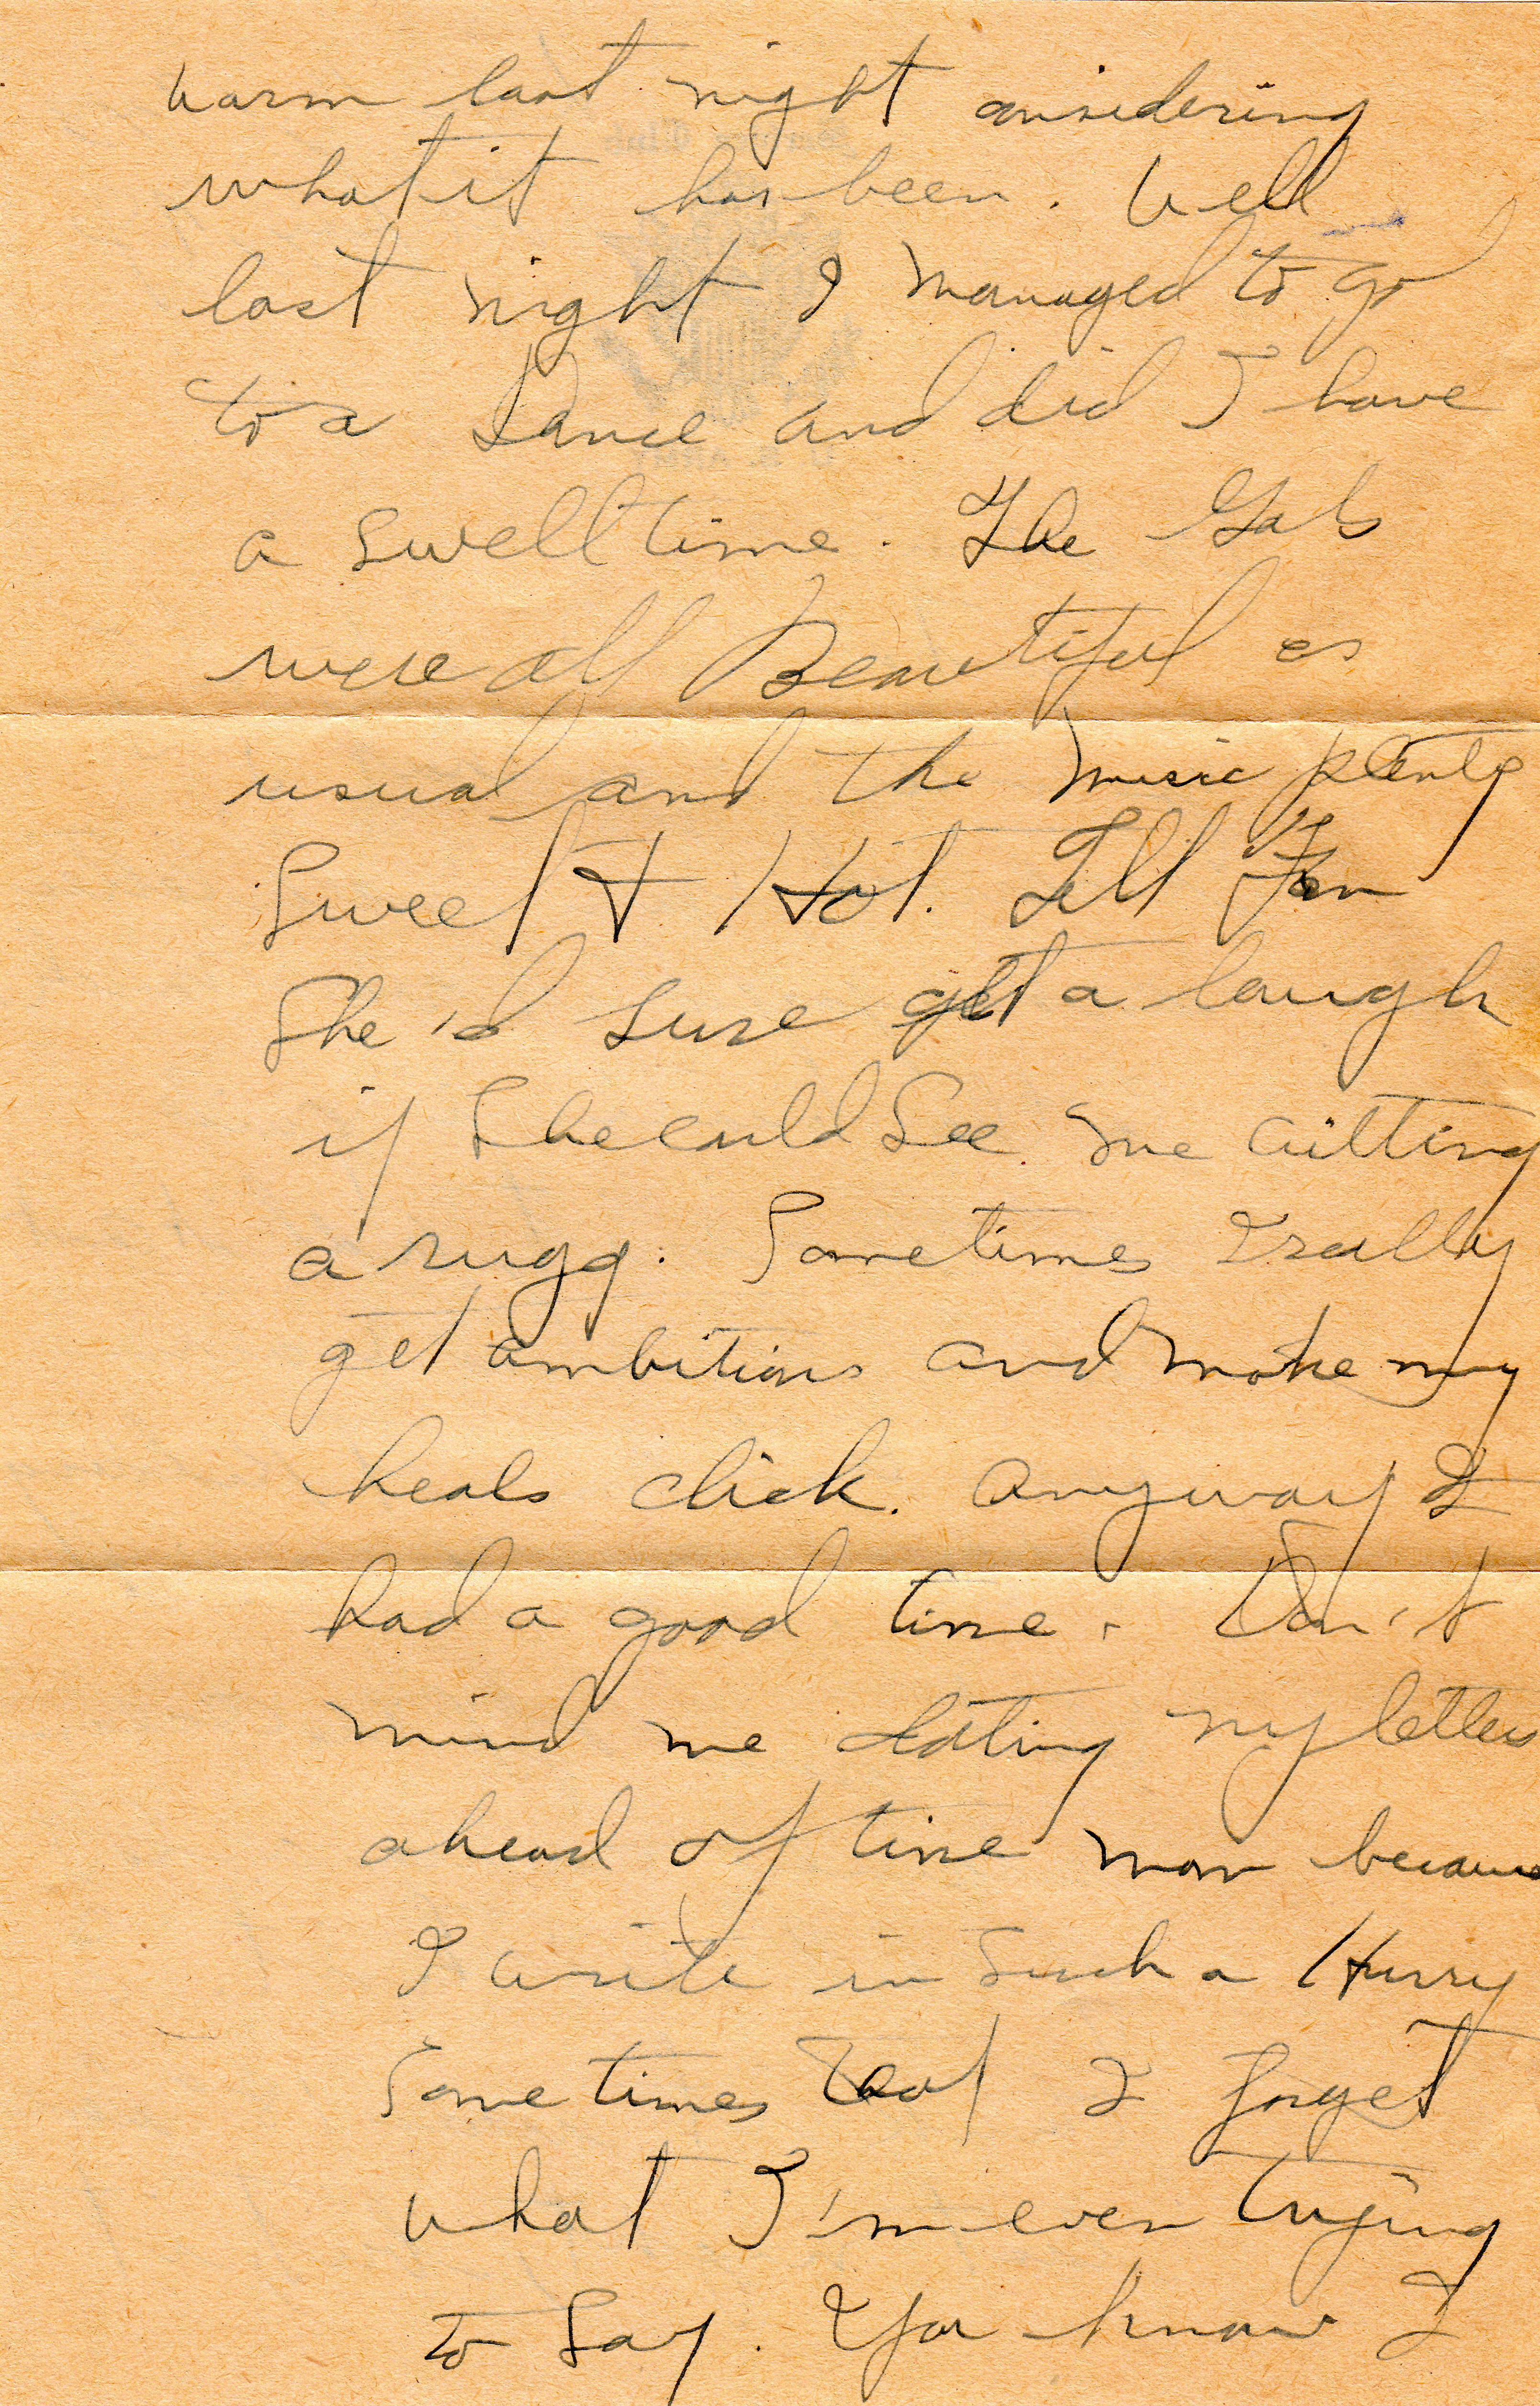 warm last night considering
what it has been. Well
last night I managed to go
to a Dance and did I have
a swell time. The Gals
were all Beautiful as
usual and the music plenty
Sweet & Hot. Tell Fran
She'd sure get a laugh
if She could See me cutting
a rugg. Sometimes I really
get ambitious and make my
heals click. Anyway I
had a good time. Don't
mind me dating my letters
ahead of time mom because
I write in such a Hurry
Sometimes that I forget
what I'm even trying
to Say. You know I